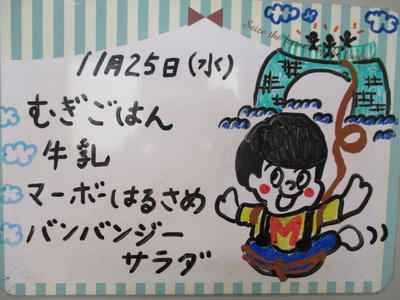 Seize the
11月25日(水)
むぎごはん
牛乳
マーボーはるさめ
バンバンジー
サラダ
M